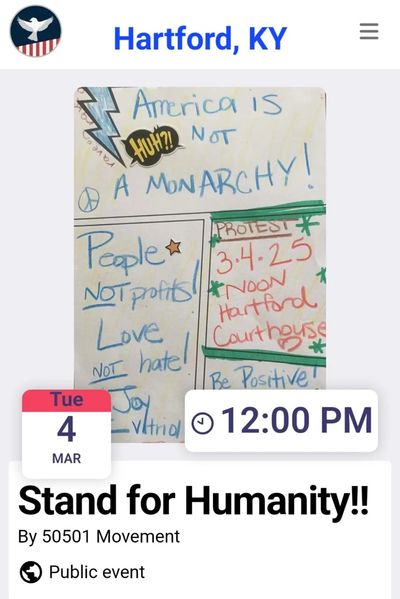 Hartford, KY
America is
NOT
HUH?!
A MONARCHY!
People
NOT profits!
Love
NOT hate!
Joy
vitriol
PROTEST
3.4.25
NOON
Hartford
Courthouse
Be Positive!
Tue
4
MAR
12:00 PM
Stand for Humanity!!
By 50501 Movement
Public event